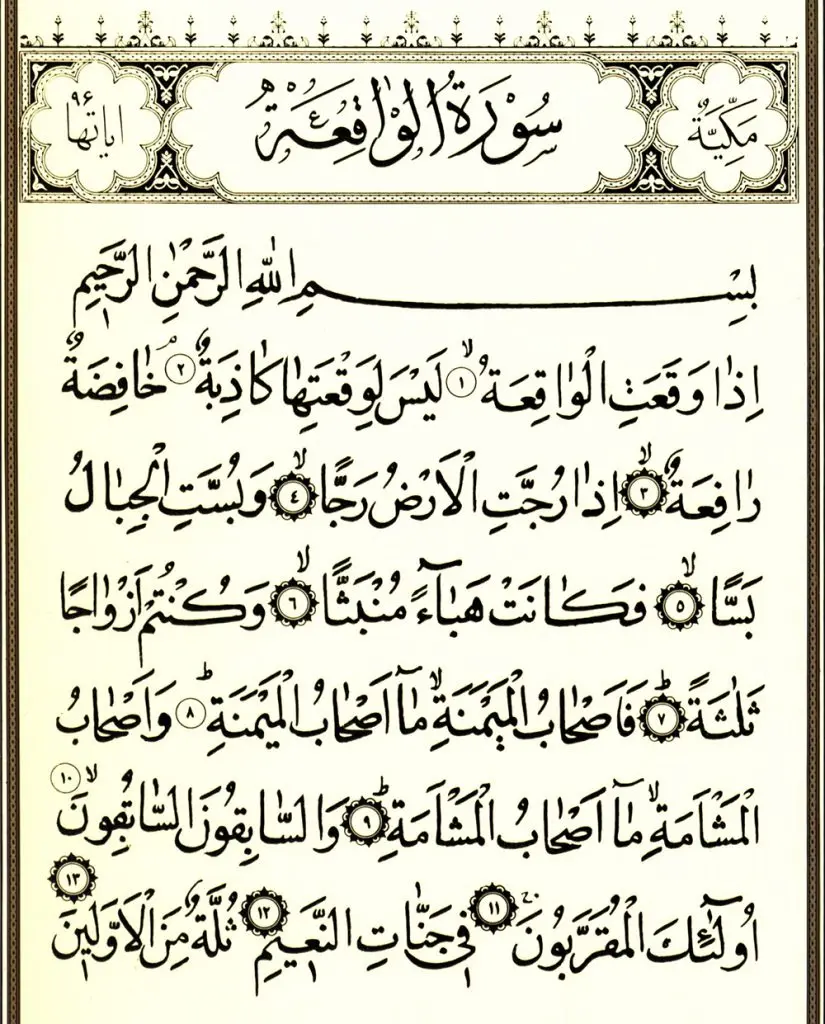 مَكِّيَّةٌ سُورَةُ الْوٰاقِعَةِ اياتها ۹۶
بِسْمِ اللّٰهِ الرَّحْمٰنِ الرَّحٖيمِ
اِذٰا وَقَعَتِ الْوٰاقِعَةُ ۙ ﴿١﴾ لَيْسَ لِوَقْعَتِهٰا كٰاذِبَةٌ ۘ ﴿٢﴾ خٰافِضَةٌ
رٰافِعَةٌ ۙ ﴿٣﴾ اِذٰا رُجَّتِ الْاَرْضُ رَجًّا ۙ ﴿٤﴾ وَبُسَّتِ الْجِبٰالُ
بَسًّا ۙ ﴿٥﴾ فَكٰانَتْ هَبٰٓاءً مُنْبَثًّا ۙ ﴿٦﴾ وَكُنْتُمْ اَزْوٰاجًا
ثَلٰثَةً ؕ ﴿٧﴾ فَاَصْحٰابُ الْمَيْمَنَةِ ۙ مٰٓا اَصْحٰابُ الْمَيْمَنَةِ ؕ ﴿٨﴾ وَاَصْحٰابُ
الْمَشْاَمَةِ ۙ مٰٓا اَصْحٰابُ الْمَشْاَمَةِ ؕ ﴿٩﴾ وَالسّٰابِقُونَ السّٰابِقُونَ ۙ ﴿١٠﴾
اُولٰٓئِكَ الْمُقَرَّبُونَ ۚ ﴿١١﴾ فٖي جَنّٰاتِ النَّعٖيمِ ﴿١٢﴾ ثُلَّةٌ مِنَ الْاَوَّلٖينَ ﴿١٣﴾